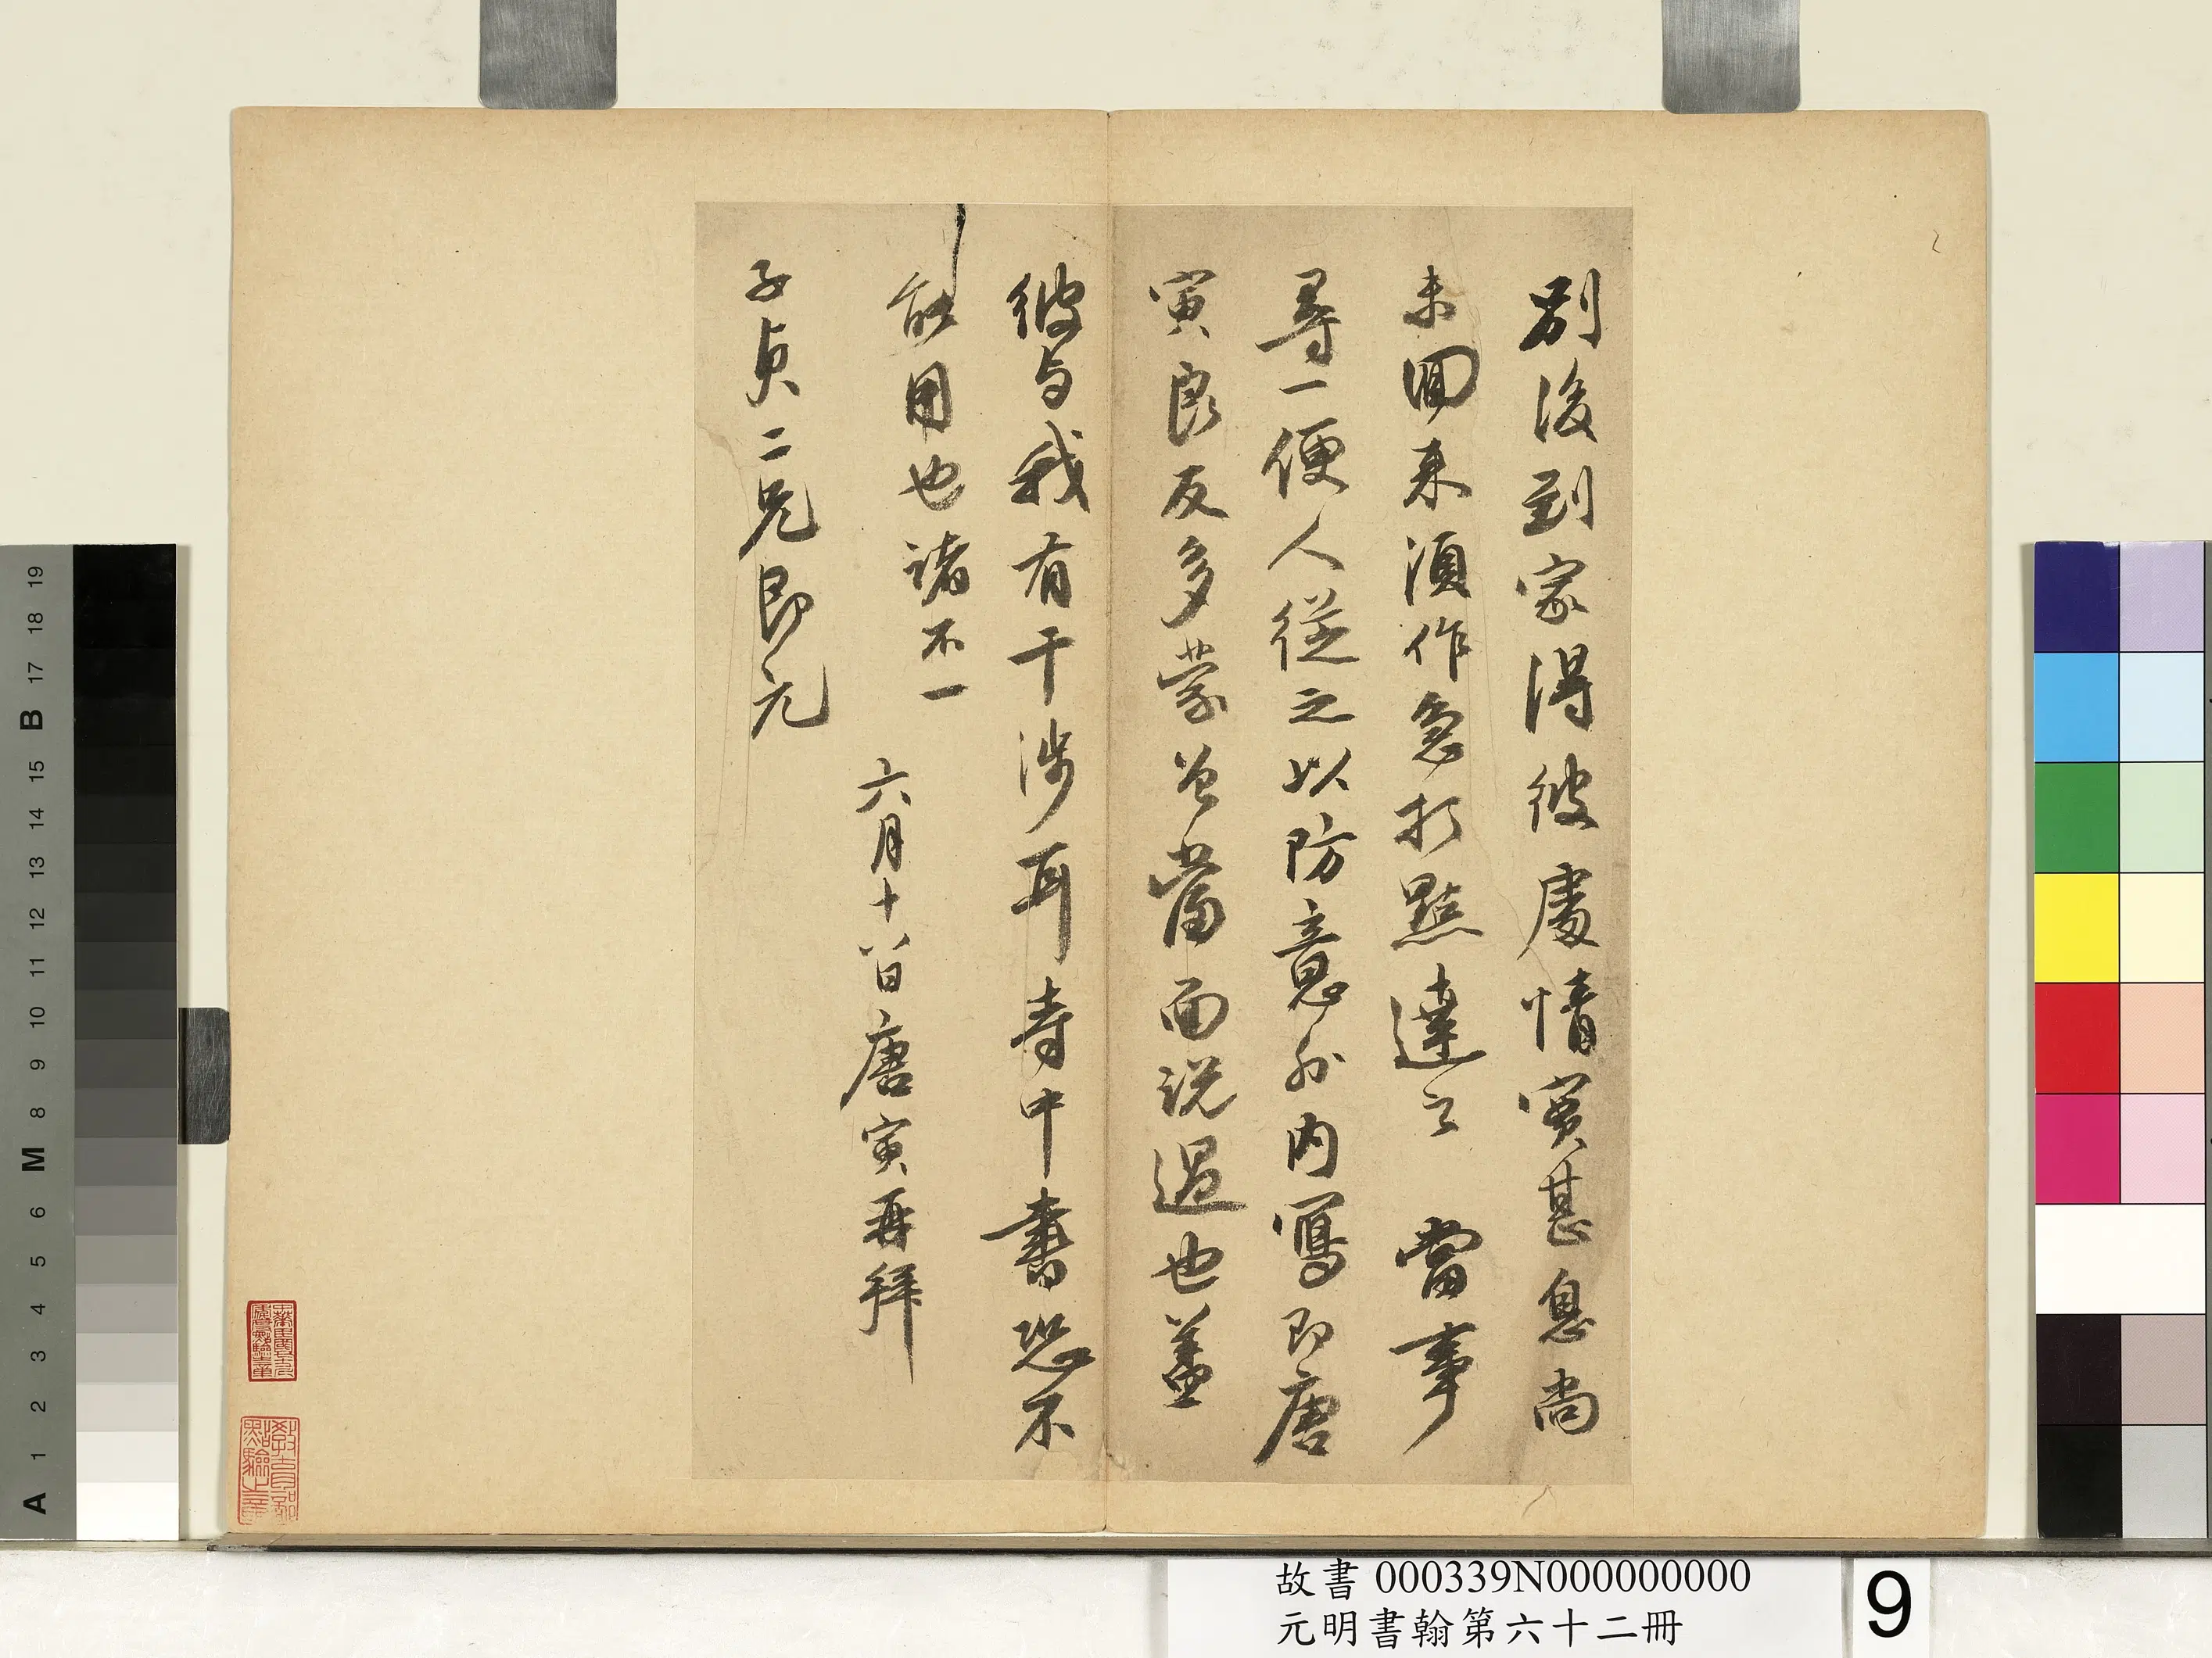 別後到家得彼處情實甚息尚
未回來須作急打點達之 當事
尋一便人從之以防意外內寫即唐
寅良友多蒙曾當面說過也蓋
彼与我有干涉耳寺中書恐不
能用也諸不一
六月十八日唐寅再拜
子貞二兄即元
故書 000339N000000000
元明書翰第六十二冊
9
19
18
17
B
15
14
13
12
11
10
9
8
M
6
5
4
3
2
1
A